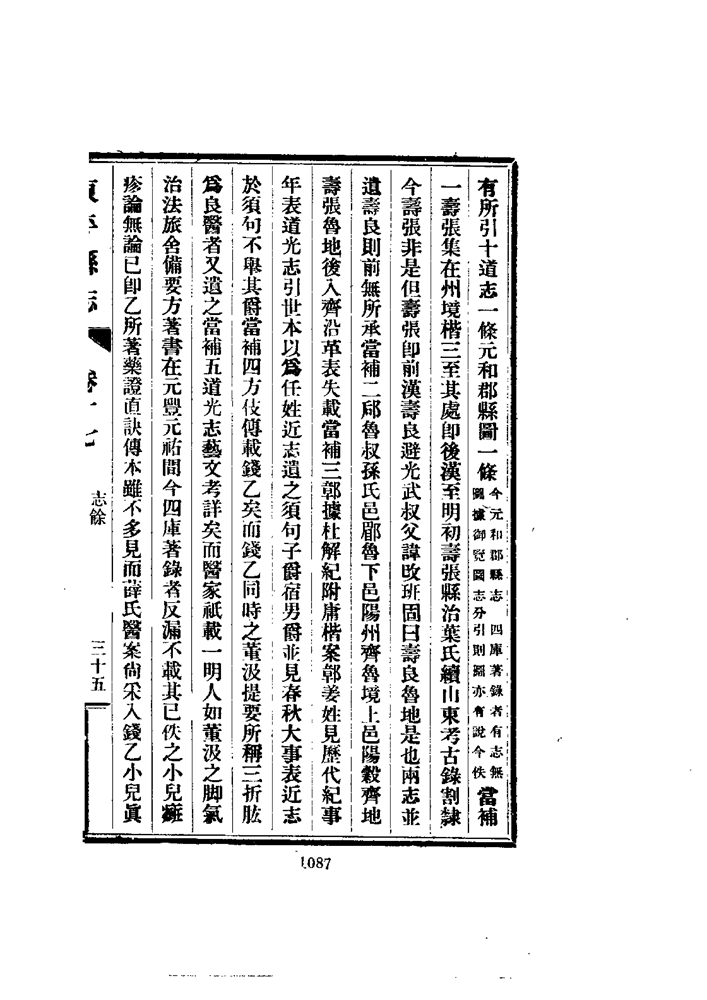 有所引十道志一條元和郡縣圖一條今元和郡縣志四庫著錄者有志無圖據御覽圖志分引則圖亦有說今佚當補
一壽張集在州境楷三至其處卽後漢至明初壽張縣治葉氏續山東考古錄割隸
今壽張非是但壽張卽前漢壽良避光武叔父諱改班固曰壽良魯地是也兩志並
遺壽良則前無所承當補二郈魯叔孫氏邑郿魯下邑陽州齊魯境上邑陽穀齊地
壽張魯地後入齊沿革表失載當補三鄣據杜解紀附庸楷案鄣姜姓見歷代紀事
年表道光志引世本以爲任姓近志遺之須句子爵宿男爵並見春秋大事表近志
於須句不舉其爵當補四方伎傳載錢乙矣而錢乙同時之董汲提要所稱三折肱
爲良醫者又遺之當補五道光志藝文考詳矣而醫家祇載一明人如董汲之脚氣
治法旅舍備要方著書在元豐元祐間今四庫著錄者反漏不載其已佚之小兒癍
疹論無論已卽乙所著藥證直訣傳本雖不多見而薛氏醫案尙采入錢乙小兒眞
東平縣志 卷十七 志餘 三十五
1087